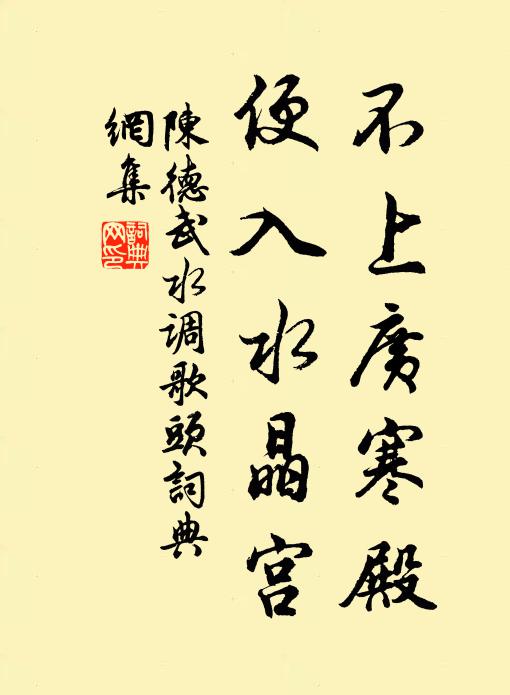 不上廣寒殿
便入水晶宮
陳德武水調歌頭詞典
網集
詞典
网印